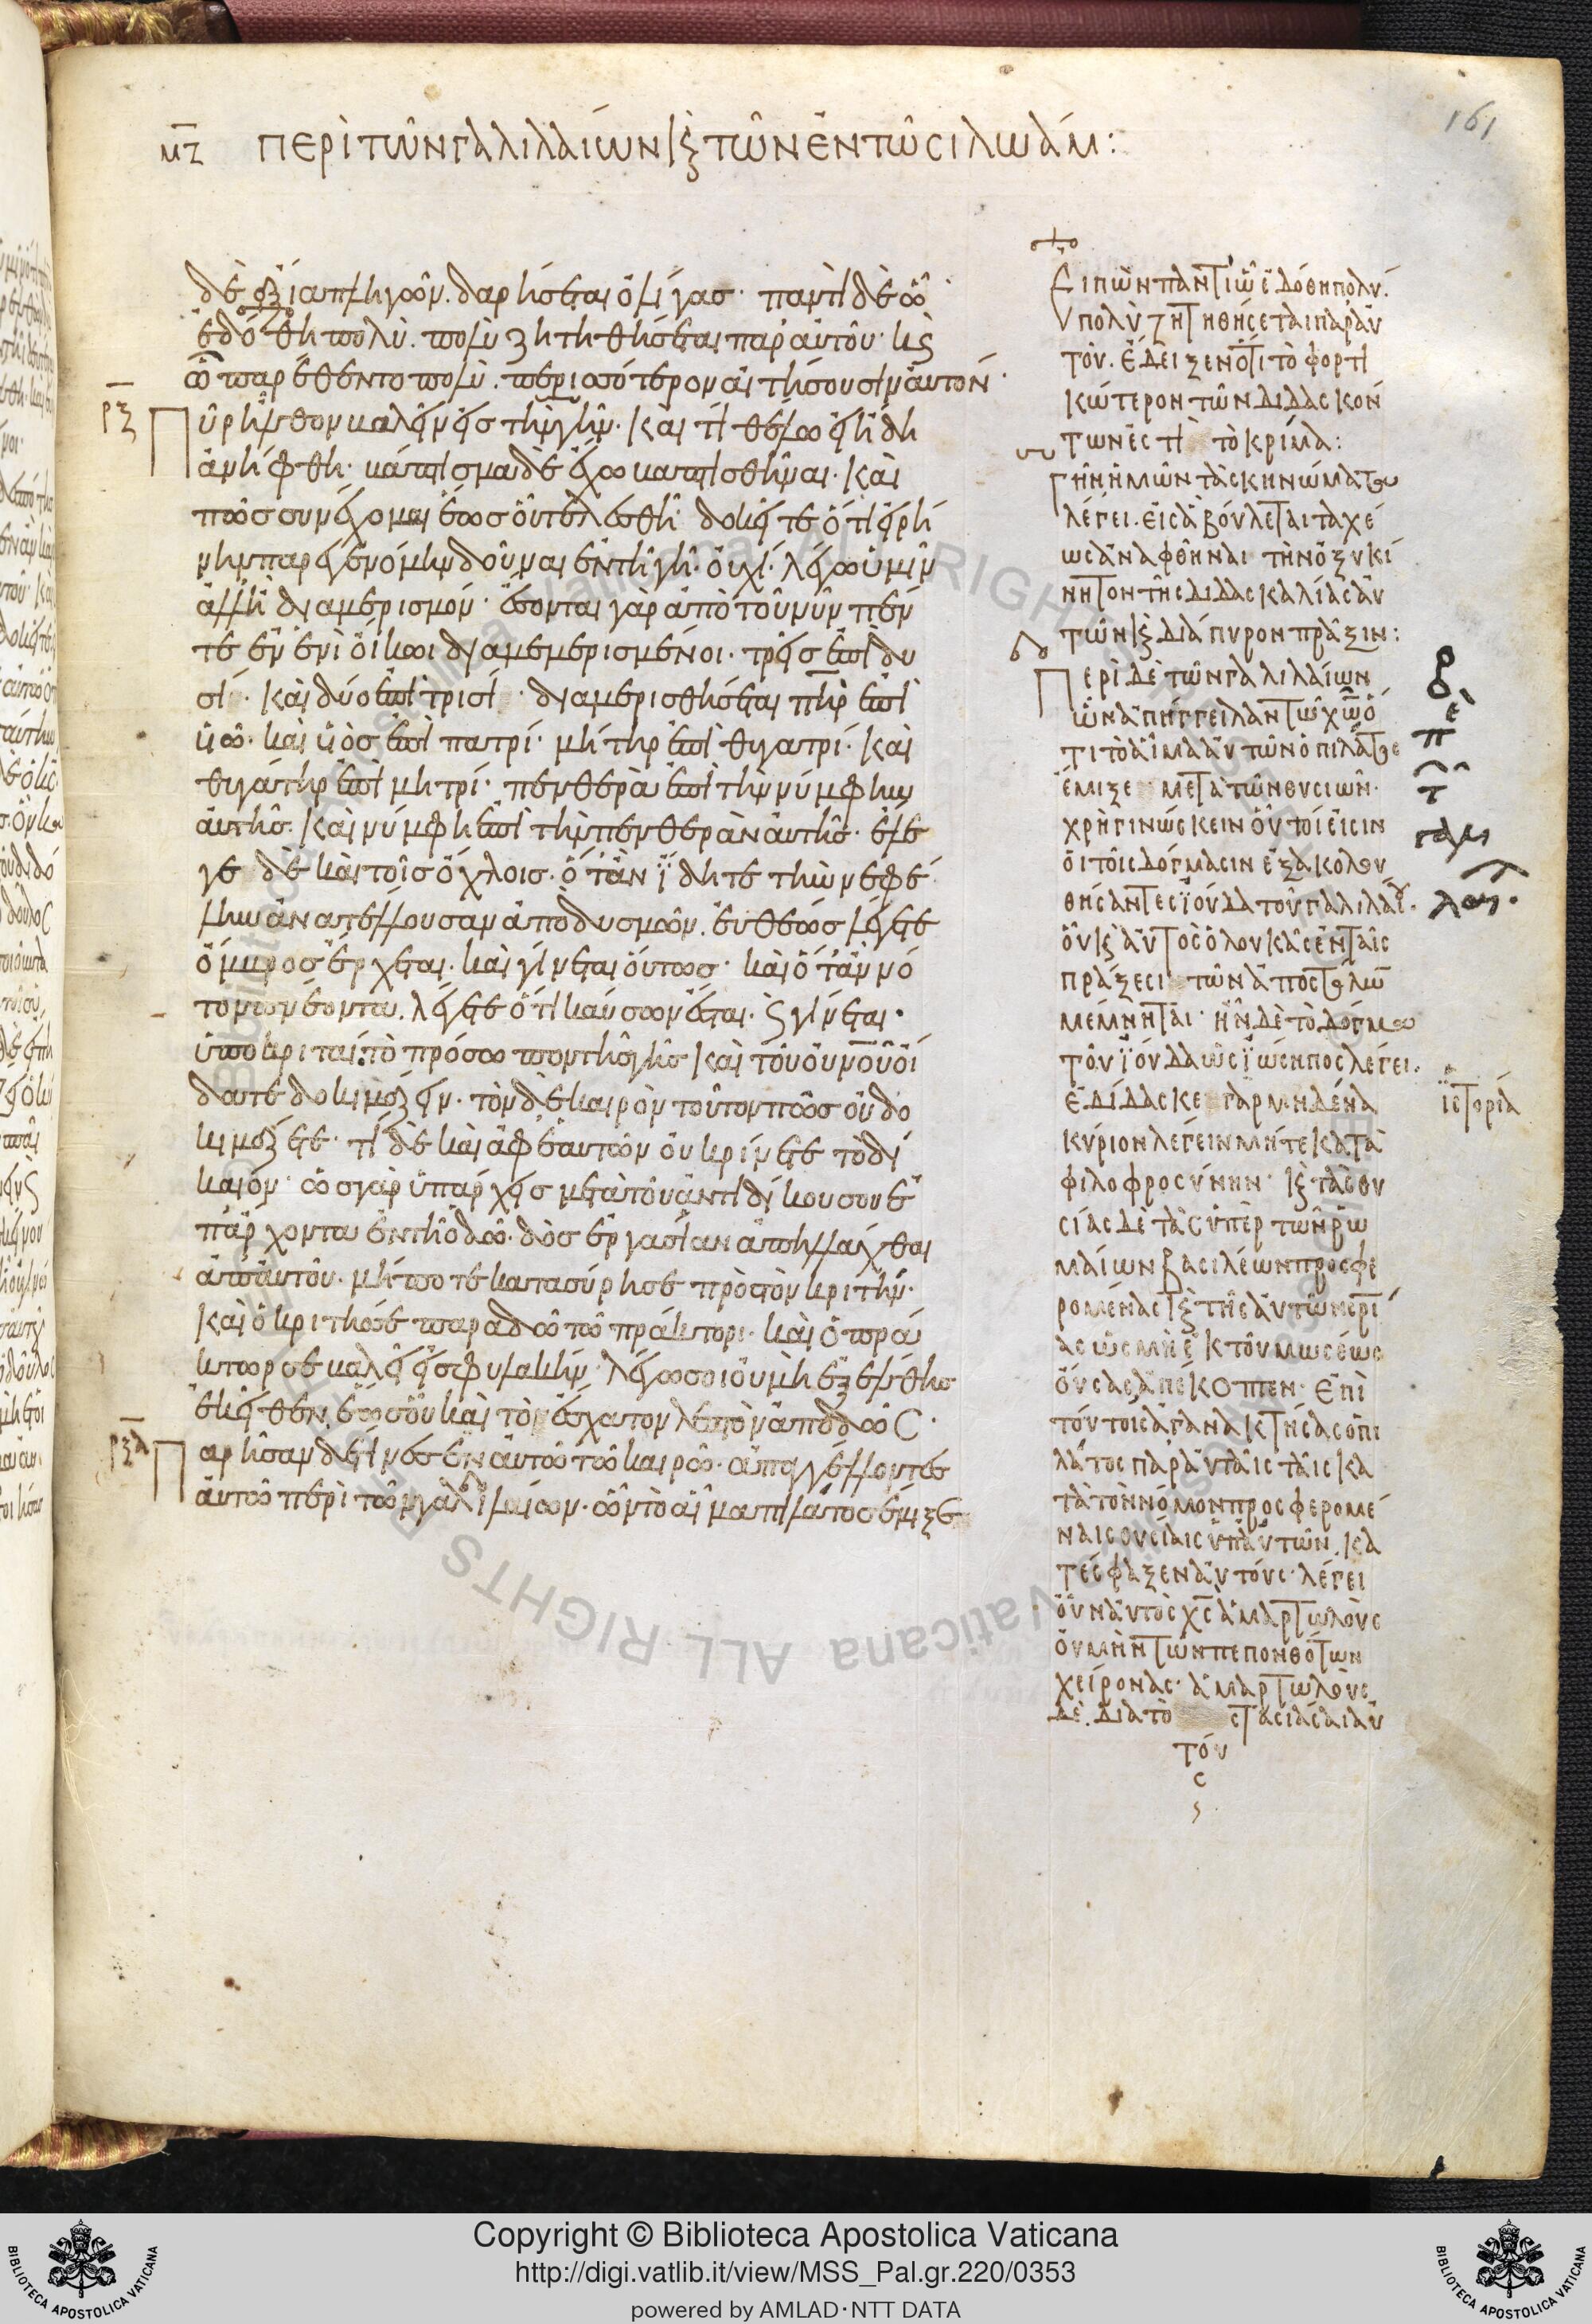 161
μζ περὶ τῶν γαλιλαίων κ(αὶ) τῶν ἐν τῶ σιλωάμ:
δὲ ἄξια πληγῶν. δαρήσεται ὀλίγας· παντὶ δὲ ὧ
ἐδόθη πολὺ. πολὺ ζητηθήσεται παρ αὐτοῦ· κ(αὶ)
ὧ παρέθεντο πολὺ. περισσότερον αἰτήσουσιν αὐτόν·
ρξ Πῦρ ἦλθον βαλεῖν εἰς τὴν γῆν· καὶ τί θέλω εἰ ἤδη
ἀνήφθη· βάπτισμα δὲ ἔχω βαπτισθῆναι· καὶ
πῶς συνέχομαι ἕως οὗ τελεσθῆ· δοκεῖτε ὅτι εἰρή
νην παρεγενόμην δοῦναι ἐν τῆ γῆ· οὐχί· λέγω ὑμῖν
ἀλλ ἢ διαμερισμόν· ἔσονται γὰρ ἀπὸ τοῦ νῦν πέν
τε ἐν ἑνὶ οἴκωι διαμεμερισμένοι· τρεῖς ἐπὶ δυ
σί· καὶ δύο ἐπὶ τρισί· διαμερισθήσεται π(ατ)ὴρ ἐπὶ
ὑιῶ· καὶ ὑιὸς ἐπὶ πατρί· μήτηρ ἐπὶ θυγατρί· καὶ
θυγάτηρ ἐπὶ μητρί· πενθερὰ ἐπὶ τὴν νύμφην
αὐτῆς· καὶ νύμφη ἐπὶ τὴν πενθερὰν αὐτῆς· ἔλε
γε δὲ καὶ τοῖς ὄχλοις· ὅταν ἴδητε τὴν νεφέ
λην ἀνατέλλουσαν ἀπὸ δυσμῶν. εὐθέως λέγετε
ὄμβρος ἔρχεται· καὶ γίνεται οὕτως· καὶ ὅταν νό
τον πνέοντα. λέγετε ὅτι καύσων ἔσται· κ(αὶ) γίνεται·
ὑποκριταί· τὸ πρόσωπον τῆς γῆς καὶ τοῦ οὐ(ρα)νοῦ οἴ
δατε δοκιμάζειν· τὸν δὲ καιρὸν τοῦτον πῶς οὐ δο
κιμάζετε· τί δὲ καὶ ἀφ ἑαυτῶν οὐ κρίνετε τὸ δί
καιόν· ὡς γὰρ ὑπάρχεις μετὰ τοῦ ἀντιδίκου σου ἐ
πάρχοντα ἐν τῆ ὁδῶ· δὸς ἐργασίαν ἀπηλλάχθαι
ἀπ αὐτοῦ· μήποτε κατασύρη σε πρὸς τὸν κριτήν·
καὶ ὁ κριτής σε παραδῶ τῶ πράκτορι· καὶ ὁ πρά
κτωρ σε βαλεῖ εἰς φυλακήν· λέγω σοι οὐ μὴ ἐξέλθης
ἐκεῖθεν. ἕως οὗ καὶ τὸν ἔσχατον λεπτὸν ἀποδῶς·
ρξα Παρῆσαν δέ τινες ἐν αὐτῶ τῶ καιρῶ· ἀπαγγέλλοντες
αὐτῶ περὶ τῶν γαλιλαίων· ὧν τὸ αἷμα πιλάτος ἔμιξε
Εἰπὼν παντὶ ὧ ἐδόθη πολύ.
πολὺ ζητηθήσεται παρ αὐ
τοῦ. ἔδειξεν ὅτι τὸ φορτι
κώτερον τῶν διδασκόν
των ἐστὶ τὸ κρίμα:
Γῆν ἡμῶν τὰ σκηνώματα
λέγει. εἰς ἃ βούλεται ταχέ
ως ἀναφθῆναι τὴν ὀξυκί
νητον τῆς διδασκαλίας αὐ
τῶν κ(αὶ) διάπυρον πρᾶξιν:
Περὶ δὲ τῶν γαλιλαίων
ὧν ἀπήγγειλαν τῶ χ(ριστ)ῶ ὅ
τι τὸ αἷμα αὐτῶν ὁ πιλάτος
ἔμιξε μετὰ τῶν θυσιῶν·
χρὴ γινώσκειν οὗτοί εἰσιν
οἱ τοῖς δόγμασιν ἐξακολου
θήσαντες ϊούδα τοῦ γαλιλαίου·
οὗ κ(αὶ) αὐτὸς ὁ λουκᾶς ἐν ταῖς
πράξεσι τῶν ἀποστόλων
μέμνηται· ἦν δὲ τὸ δόγμα
τοῦ ϊούδα ὡς ϊώσηπος λέγει.
ἐδίδασκε γὰρ μηδένα
κύριον λέγειν μήτε κατὰ
φιλοφροσύνην· κ(αὶ) τὰς θυ
σίας δὲ τὰς ὑπὲρ τῶν ρω
μαίων βασιλέων προσφε
ρομένας κ(αὶ) τῆς αὐτῶν
ας ὡς μὴ ἐκ τοῦ μωσέως
οὔσας ἀπέκοπτεν· ἐπὶ
τούτοις ἀγανακτήσας ὁ πι
λάτος παρ αὐταῖς ταῖς κα
τὰ τὸν νόμον προσφερομέ
ναις θυσίαις ὑπ αὐτῶν. κα
τέσφαξεν αὐτούς· λέγει
οὖν αὐτὸς χ(ριστὸ)ς ἁμαρτωλοὺς
οὐ μὴν τῶν πεπονθότων
χείρονας· ἁμαρτωλοὺς
δὲ. διὰ τὸ στασιάσαι αὐ
τού
ς
ϊστορία